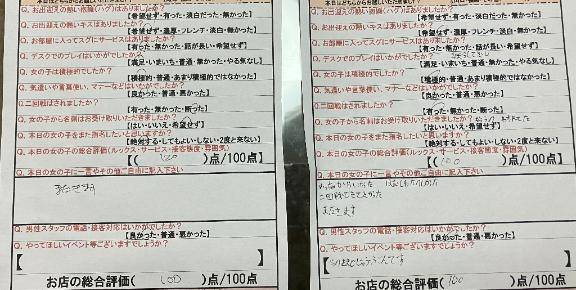 Q. お出迎えの熱い抱擁(ハグ)はありましたか?
【希望せず・有った・淡白だった・無かった】
Q. お出迎えの熱いキスはありましたか?
【希望せず・濃厚・フレンチ・淡白・無かった】
Q. お部屋に入ってスグにサービスはありましたか?
【有った・無かった・話が長い・希望せず】
Q. デスクでのプレイはいかがでしたか?
【満足・いまいち・普通・無かった・やる気なし】
Q. 女の子は積極的でしたか?
【積極的・普通・あまり積極的ではなかった】
Q. 気遣いや言葉使い、マナーなどはいかがでしたか?
【良かった・普通・悪かった】
Q. 二回戦はされましたか?
【有った・無かった・断った】
Q. 女の子から名刺はお受け取りいただきましたか?
【はい・いいえ・希望せず】
Q. 本日の女の子をまた指名したいと思いますか?
【絶対する・してもよい・しない・2度と来ない】
Q. 本日の女の子の総合評価(ルックス・サービス・接客態度・雰囲気)
【( 100 )点/100点】
Q. 本日の女の子に一言やその他ご自由に記入下さい
Q. 男性スタッフの電話・接客対応はいかがでしたか?
【良かった・普通・悪かった】
Q. やってほしいイベント等ございますでしょうか?
【 】
お店の総合評価( 100 )点/100点
Q. お出迎えの熱い抱擁(ハグ)はありましたか?
【希望せず・有った・淡白だった・無かった】
Q. お出迎えの熱いキスはありましたか?
【希望せず・濃厚・フレンチ・淡白・無かった】
Q. お部屋に入ってスグにサービスはありましたか?
【有った・無かった・話が長い・希望せず】
Q. デスクでのプレイはいかがでしたか?
【満足・いまいち・普通・無かった・やる気なし】
Q. 女の子は積極的でしたか?
【積極的・普通・あまり積極的ではなかった】
Q. 気遣いや言葉使い、マナーなどはいかがでしたか?
【良かった・普通・悪かった】
Q. 二回戦はされましたか?
【有った・無かった・断った】
Q. 女の子から名刺はお受け取りいただきましたか?
【はい・いいえ・希望せず】
Q. 本日の女の子をまた指名したいと思いますか?
【絶対する・してもよい・しない・2度と来ない】
Q. 本日の女の子の総合評価(ルックス・サービス・接客態度・雰囲気)
【( 100 )点/100点】
Q. 本日の女の子に一言やその他ご自由に記入下さい
二回戦できてよかった
また来ます
Q. 男性スタッフの電話・接客対応はいかがでしたか?
【良かった・普通・悪かった】
Q. やってほしいイベント等ございますでしょうか?
お店の総合評価( 100 )点/100点